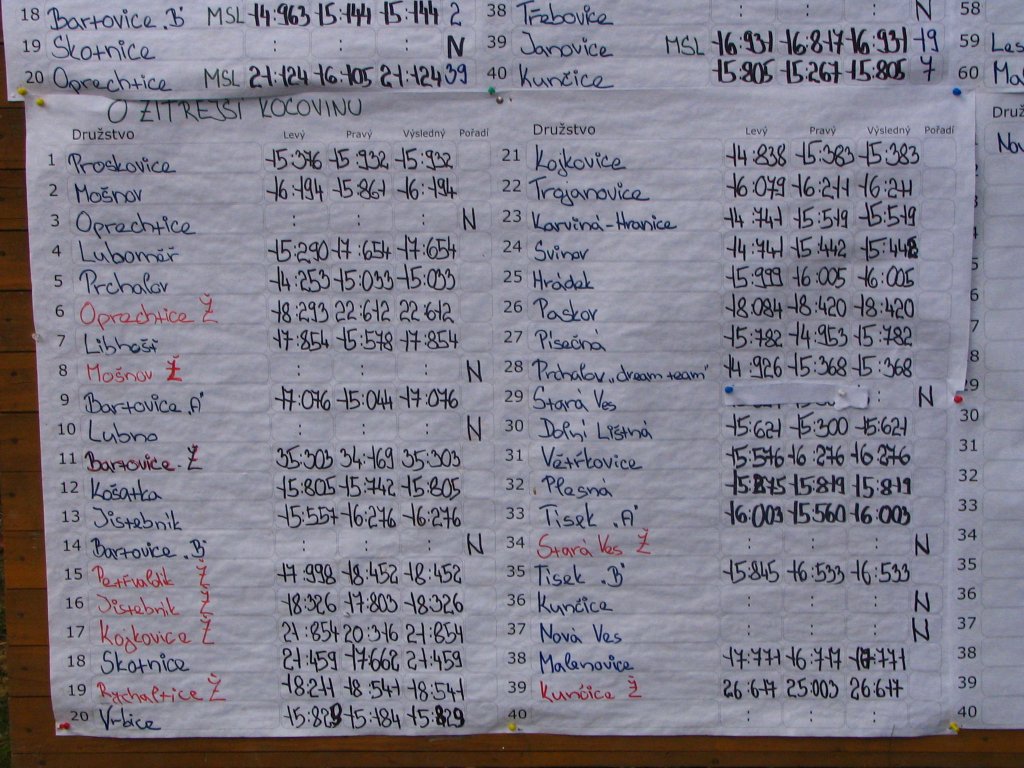 18 Bartovice „B" MSL 14:963 15:144 15:144 2
19 Skotnice : : : N
20 Oprechtice MSL 21:124 16:105 21:124 39
38 Třebovice : : : N
39 Janovice MSL 16:931 16:817 16:931 19
40 Kunčice 15:805 15:267 15:805 7
58
59 Les
60
O ZÍTŘEJŠÍ KOCOVINU
Družstvo Levý Pravý Výsledný Pořadí
1 Proskovice 15:376 15:932 15:932
2 Mošnov 16:194 15:861 16:194
3 Oprechtice : : : N
4 Luboměř 15:290 17:654 17:654
5 Prchalov 14:253 15:033 15:033
6 Oprechtice Ž 18:293 22:612 22:612
7 Libhošť 17:854 15:578 17:854
8 Mošnov Ž : : : N
9 Bartovice „A" 17:076 15:044 17:076
10 Lubno : : : N
11 Bartovice Ž 35:303 34:169 35:303
12 Košatka 15:805 15:742 15:805
13 Jistebník 15:557 16:276 16:276
14 Bartovice „B" : : : N
15 Petřvaldík Ž 17:998 18:452 18:452
16 Jistebník Ž 18:326 17:803 18:326
17 Kojkovice Ž 21:854 20:316 21:854
18 Skotnice 21:459 17:662 21:459
19 Rychaltice Ž 18:211 18:541 18:541
20 Vrbice 15:829 15:184 15:829
Družstvo Levý Pravý Výsledný Pořadí
21 Kojkovice 14:838 15:383 15:383
22 Trojanovice 16:079 16:211 16:211
23 Karviná-Hranice 14:741 15:519 15:519
24 Svinov 14:741 15:442 15:442
25 Hrádek 15:999 16:005 16:005
26 Paskov 18:084 18:420 18:420
27 Písečná 15:782 14:953 15:782
28 Prchalov „dream team" 14:926 15:368 15:368
29 Stará Ves : N
30 Dolní Líštná 15:621 15:300 15:621
31 Větřkovice 15:576 16:276 16:276
32 Plesná 15:815 15:819 15:819
33 Tísek „A" 16:003 15:560 16:003
34 Stará Ves Ž : : : N
35 Tísek „B" 15:845 16:533 16:533
36 Kunčice : : : N
37 Nová Ves : : : N
38 Malenovice 17:771 16:717 17:771
39 Kunčice Ž 26:617 25:003 26:617
40 : : :
Druž
30
31
32
33
34
35
36
37
38
39
40